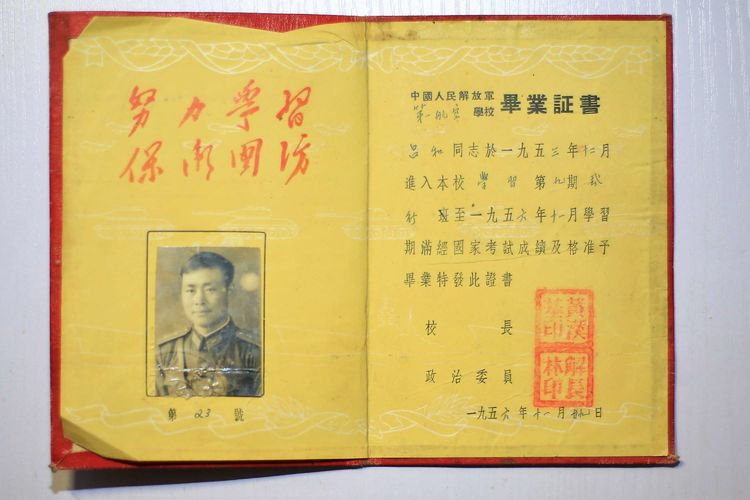 努力學習
保衛國防
第 123 號
中國人民解放軍
第一航空 學校 畢業証書
呂和同志於一九五三年十二月
進入本校學習第九期飛
行班至一九五六年十一月學習
期滿經國家考試成績及格准予
畢業特發此證書
校長
政治委員
解長
林印
一九五六年十一月 日